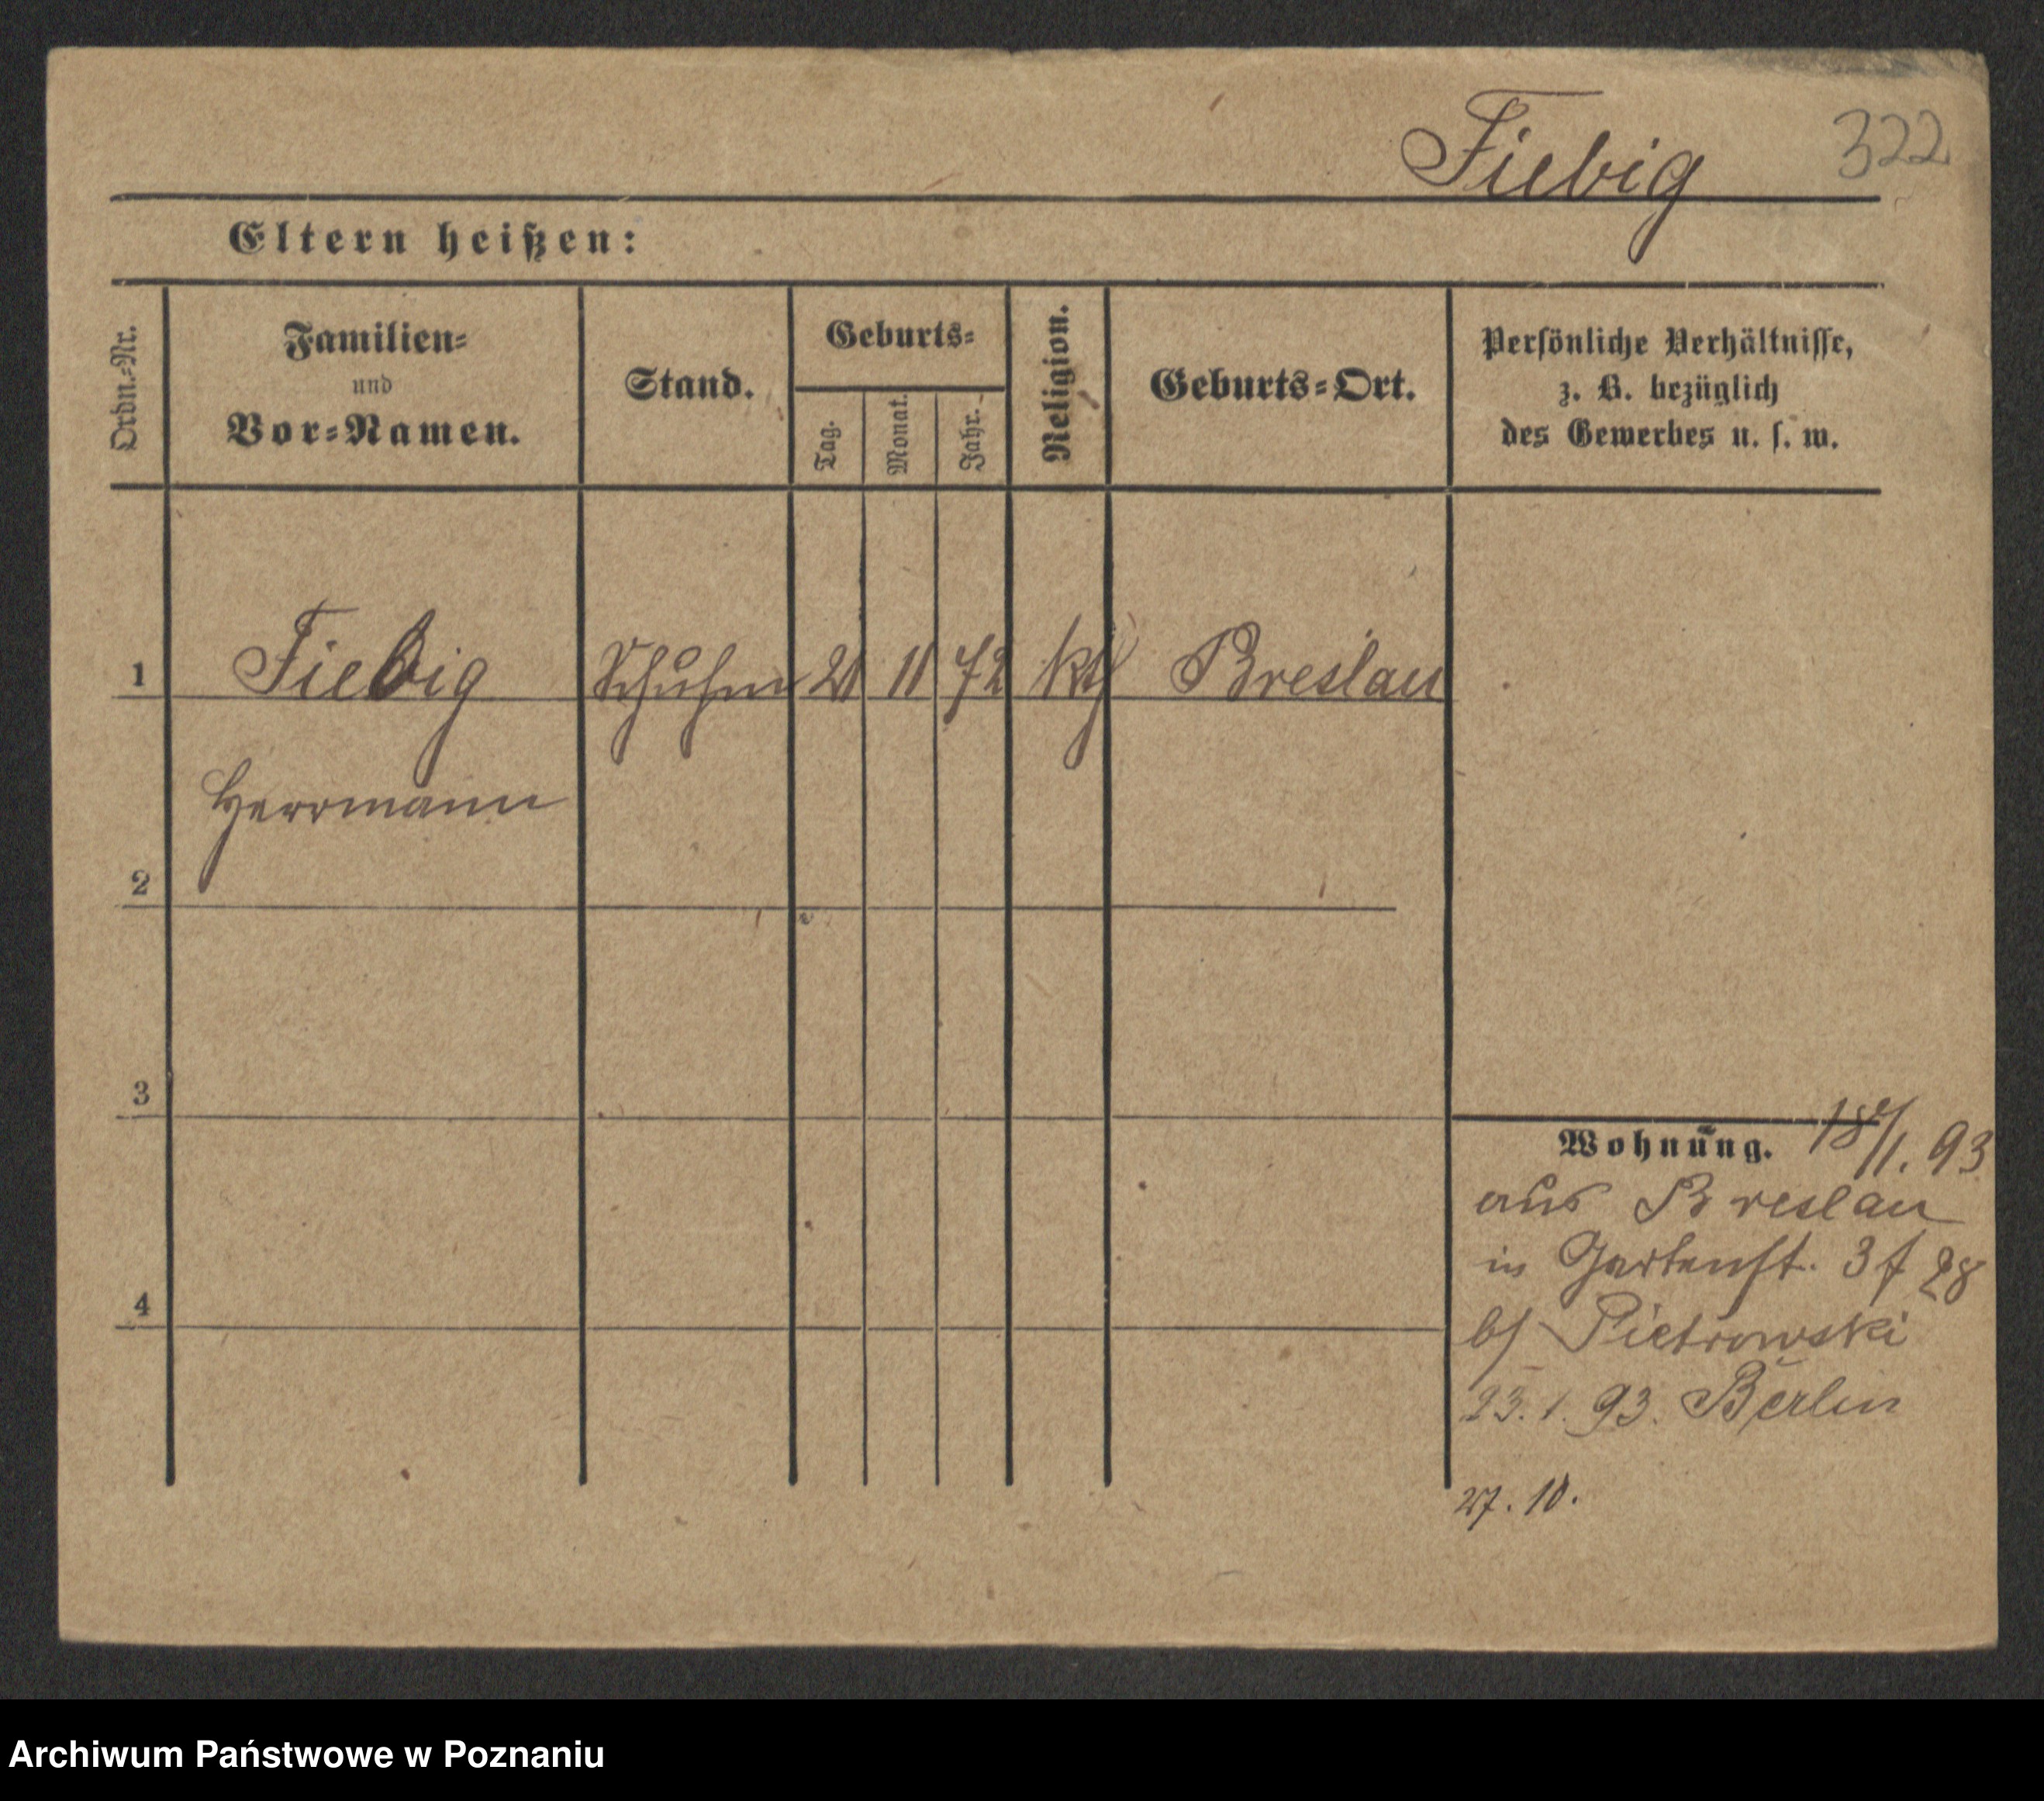 Fiebig 322
Eltern heißen:
Ordn.=Nr.
Familien=
und
Vor=Namen.
Stand.
Geburts=
Tag.
Monat.
Jahr.
Religion.
Geburts=Ort.
Persönliche Verhältnisse,
z. B. bezüglich
des Gewerbes u. s. w.
1 Fiebig Schuhm 21 11 72 kth Breslau
Herrmann
2
3
4
Wohnung. 18/1. 93
aus Breslau
in Gartenst. 3
b/ Pietrowski
23. 1. 93. Berlin
27. 10.
Archiwum Państwowe w Poznaniu